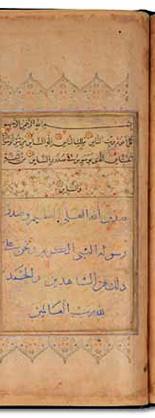 بسم الله الرحمن الرحيم
قل اعوذ برب الناس ملك الناس اله الناس من شر الوسواس
الخناس الذي يوسوس في صدور الناس من الجنة
والناس
صدق الله العلي العظيم وصدق
رسوله النبي الكريم ونحن على
ذلك من الشاهدين والحمد
لله رب العالمين